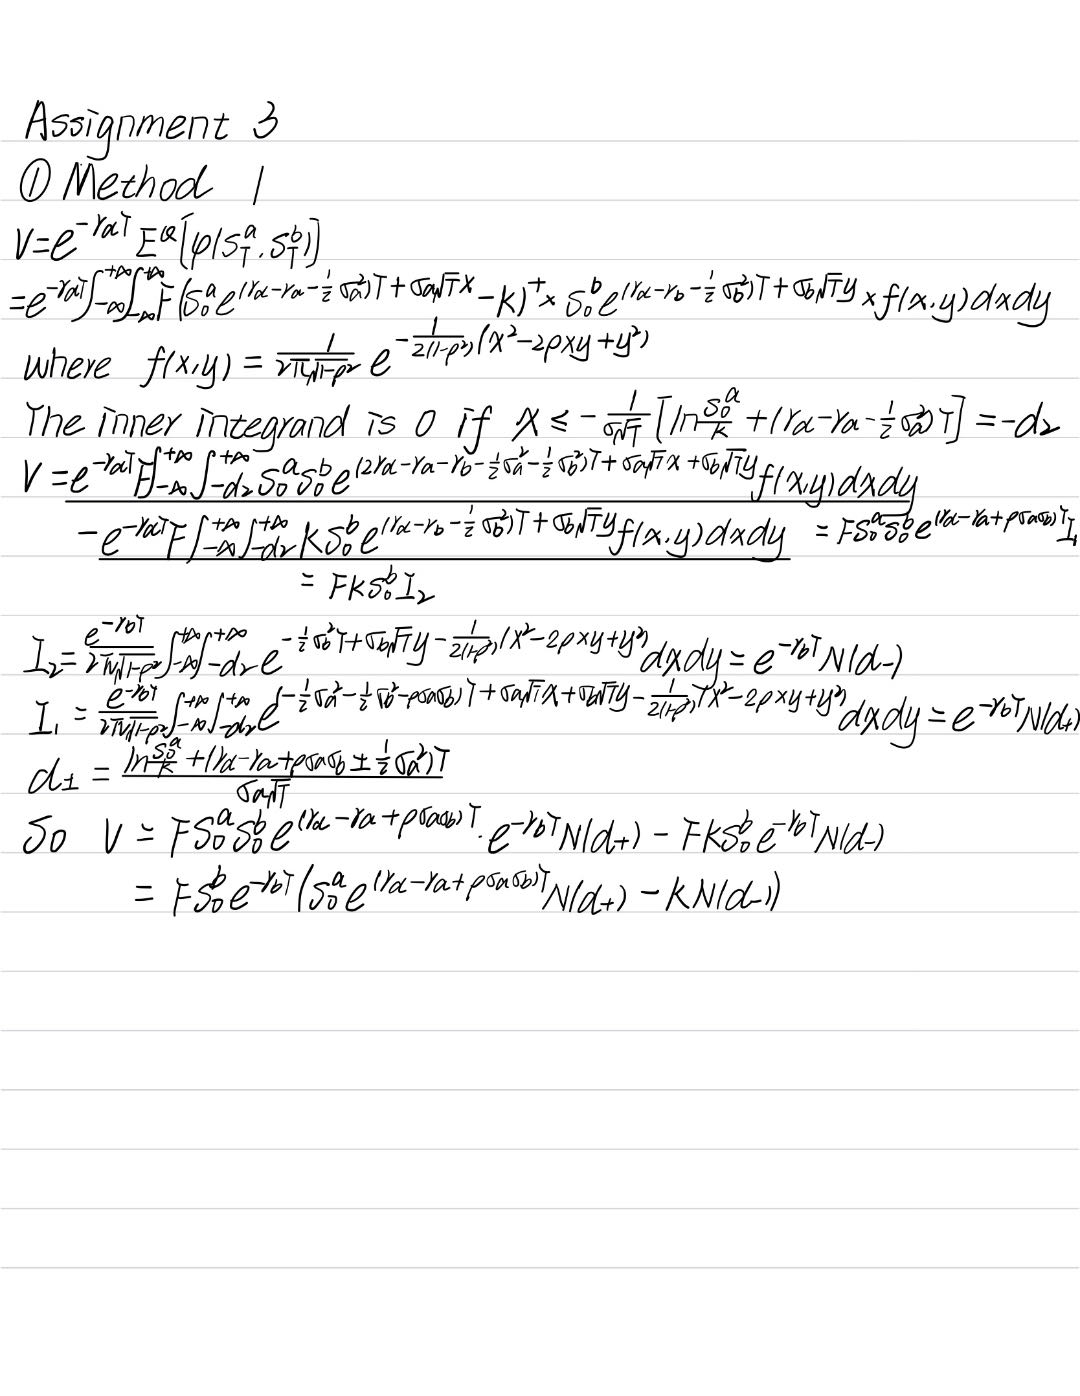 Assignment 3
① Method 1
V=e^{-r_dT} E^Q[φ(S_T^a, S_T^b)]
=e^{-r_dT}∫_{-∞}^{+∞}∫_{-∞}^{+∞}F(S_0^a e^{(r_d-r_a-\frac{1}{2}σ_a^2)T+σ_a√T x}-K)^+ × S_0^b e^{(r_d-r_b-\frac{1}{2}σ_b^2)T+σ_b√T y} × f(x,y)dxdy
where f(x,y) = \frac{1}{2π√(1-ρ^2)} e^{-\frac{1}{2(1-ρ^2)}(x^2-2ρxy+y^2)}
The inner integrand is 0 if x ≤ -\frac{1}{σ√T}[ln\frac{S_0^a}{K}+(r_d-r_a-\frac{1}{2}σ_a^2)T] = -d_2
V=e^{-r_dT}F∫_{-∞}^{+∞}∫_{-d_2}^{+∞}S_0^a S_0^b e^{(2r_d-r_a-r_b-\frac{1}{2}σ_a^2-\frac{1}{2}σ_b^2)T+σ_a√T x+σ_b√T y}f(x,y)dxdy
-e^{-r_dT}F∫_{-∞}^{+∞}∫_{-d_2}^{+∞}KS_0^b e^{(r_d-r_b-\frac{1}{2}σ_b^2)T+σ_b√T y}f(x,y)dxdy = FS_0^a S_0^b e^{(r_d-r_a+ρσ_aσ_b)T}I_1
= FKS_0^b I_2
I_2=\frac{e^{-r_bT}}{2π√(1-ρ^2)}∫_{-∞}^{+∞}∫_{-d_2}^{+∞}e^{-\frac{1}{2}σ_b^2T+σ_b√T y-\frac{1}{2(1-ρ^2)}(x^2-2ρxy+y^2)}dxdy=e^{-r_bT}N(d_-)
I_1=\frac{e^{-r_bT}}{2π√(1-ρ^2)}∫_{-∞}^{+∞}∫_{-d_2}^{+∞}e^{(-\frac{1}{2}σ_a^2-\frac{1}{2}σ_b^2-ρσ_aσ_b)T+σ_a√T x+σ_b√T y-\frac{1}{2(1-ρ^2)}(x^2-2ρxy+y^2)}dxdy=e^{-r_bT}N(d_+)
d_± = \frac{ln\frac{S_0^a}{K}+(r_d-r_a+ρσ_aσ_b±\frac{1}{2}σ_a^2)T}{σ_a√T}
So V = FS_0^a S_0^b e^{(r_d-r_a+ρσ_aσ_b)T}·e^{-r_bT}N(d_+) - FKS_0^b e^{-r_bT}N(d_-)
= FS_0^b e^{-r_bT}(S_0^a e^{(r_d-r_a+ρσ_aσ_b)T}N(d_+) - KN(d_-))